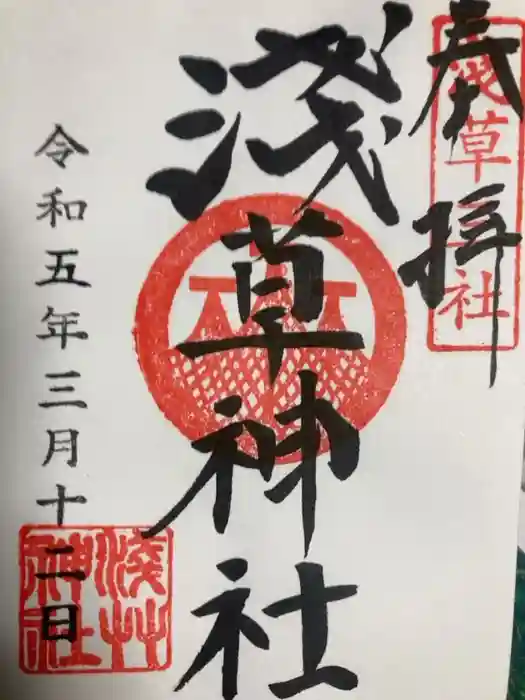 奉拝
浅草三社
淺草神社
令和五年三月十二日
淺草神社